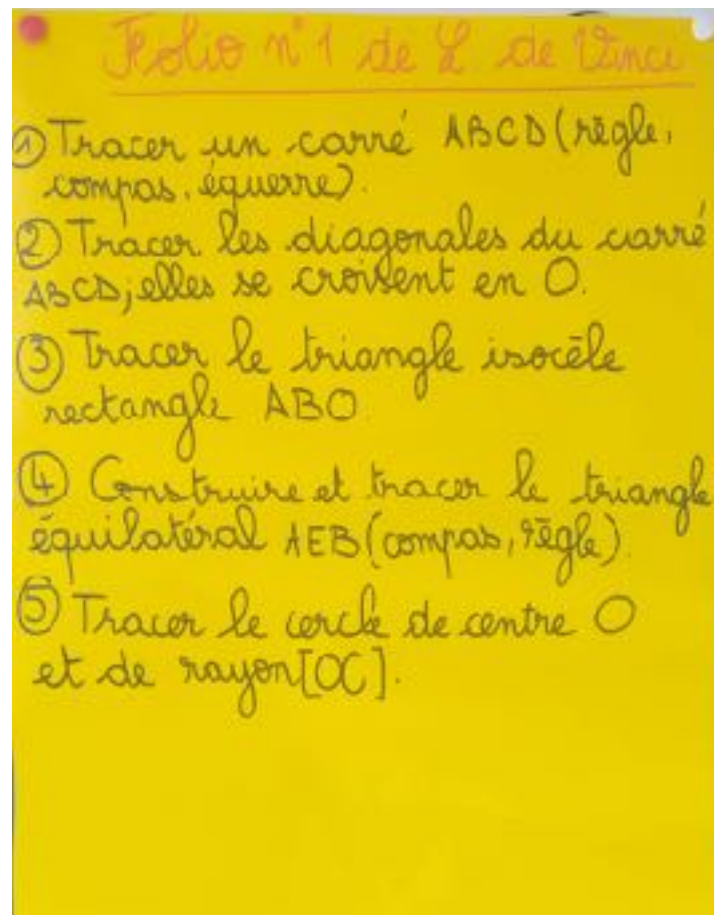 Folio n°1 de L. de Vinci
① Tracer un carré ABCD (règle,
compas, équerre).
② Tracer les diagonales du carré
ABCD; elles se croisent en O.
③ Tracer le triangle isocèle
rectangle ABO
④ Construire et tracer le triangle
équilatéral AEB (compas, règle).
⑤ Tracer le cercle de centre O
et de rayon [OC].